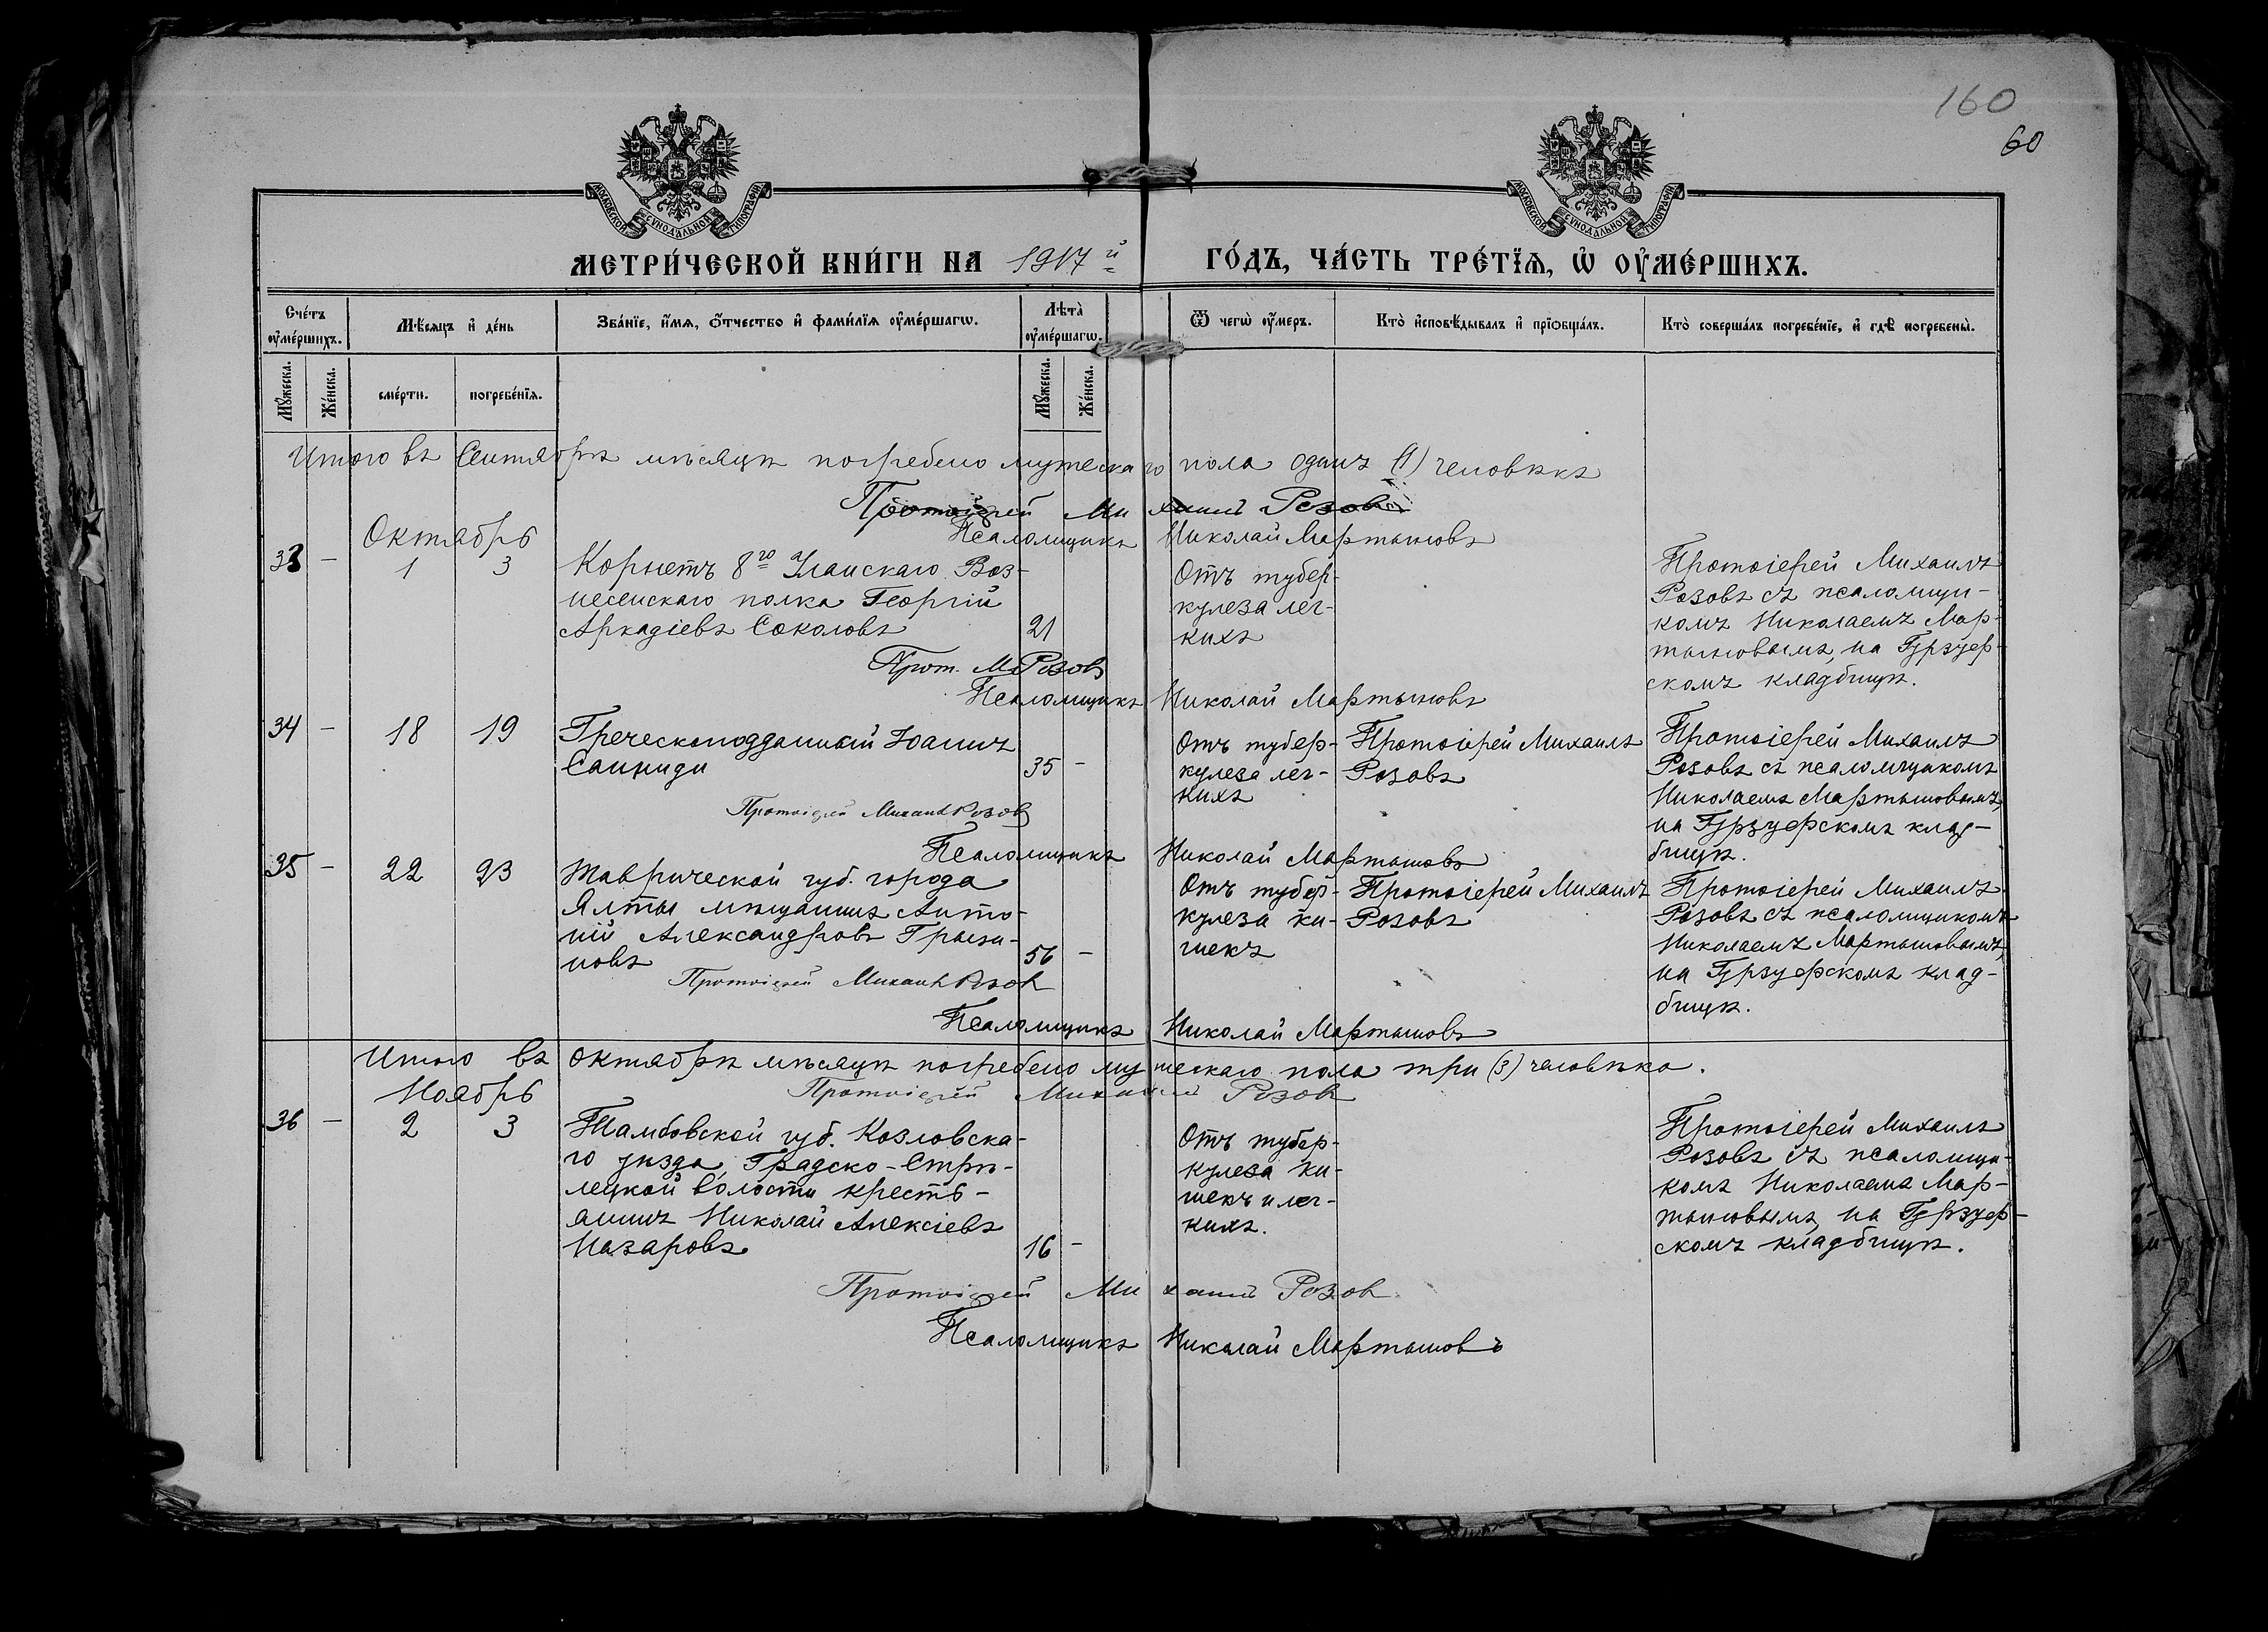 160
60
МОСКОВСКОЙ СѴНОДАЛЬНОЙ ТИПОГРАФІИ
МОСКОВСКОЙ СѴНОДАЛЬНОЙ ТИПОГРАФІИ
МЕТРИ́ЧЕСКОЙ КНИ́ГИ НА 1917й ГО́ДЪ, ЧА́СТЬ ТРЕ́ТЇѦ, Ѡ҆ ОУ҆МЕ́РШИХЪ.
Сче́тъ оу҆ме́ршихъ.
Мѣ́сѧцъ и҆ де́нь
Зва́нїе, и҆́мѧ, ѻ҆́тчество и҆ фами́лїѧ оу҆ме́ршагѡ.
Лѣта̀ оу҆ме́ршагѡ.
Ѿ чегѡ̀ оу҆́меръ.
Кто̀ и҆сповѣ́дывалъ и҆ прїѡбща́лъ.
Кто̀ соверша́лъ погребе́нїе, и҆ гдѣ̀ погребены̀.
Мꙋ́жеска.
Же́нска.
сме́рти.
погребе́нїѧ.
Мꙋ́жеска.
Же́нска.
Итого въ Сентябрѣ мѣсяцѣ погребено мужескаго пола одинъ (1) человѣкъ
Протоіерей Михаилъ Розовъ
Псаломщикъ Николай Мартыновъ
Октябрь
33 – 1 3
Корнетъ 8го Уланскаго Воз-
несенскаго полка Георгій
Аркадіевъ Соколовъ 21
Отъ тубер-
кулеза лег-
кихъ
Протоіерей Михаилъ
Розовъ съ псаломщи-
комъ Николаемъ Мар-
тыновымъ, на Гурзуф-
скомъ кладбищѣ.
Прот. М. Розовъ
Псаломщикъ Николай Мартыновъ
34 – 18 19
Греческоподданный Іоаннъ
35 –
Отъ тубер-
кулеза лег-
кихъ
Протоіерей Михаилъ
Розовъ
Протоіерей Михаилъ
Розовъ съ псаломщикомъ
Николаемъ Мартыновымъ,
на Гурзуфскомъ клад-
бищѣ.
Протоіерей Михаилъ Розовъ
Псаломщикъ Николай Мартыновъ
35 – 22 23
Таврической губ. города
Ялты мѣщанинъ Анто-
ній Александровъ
56 –
Отъ тубер-
кулеза ки-
шекъ
Протоіерей Михаилъ
Розовъ
Протоіерей Михаилъ
Розовъ съ псаломщикомъ
Николаемъ Мартыновымъ,
на Гурзуфскомъ клад-
бищѣ.
Протоіерей Михаилъ Розовъ
Псаломщикъ Николай Мартыновъ
Итого въ Октябрѣ мѣсяцѣ погребено мужескаго пола три (3) человѣка.
Протоіерей Михаилъ Розовъ
Ноябрь
36 – 2 3
Тамбовской губ. Козловска-
го уѣзда, Градско-Стрѣ-
лецкой волости кресть-
янинъ Николай Алексіевъ
Назаровъ 16 –
Отъ тубер-
кулеза ки-
шекъ и лег-
кихъ.
Протоіерей Михаилъ
Розовъ съ псаломщи-
комъ Николаемъ Мар-
тыновымъ, на Гурзуф-
скомъ кладбищѣ.
Протоіерей Михаилъ Розовъ
Псаломщикъ Николай Мартыновъ